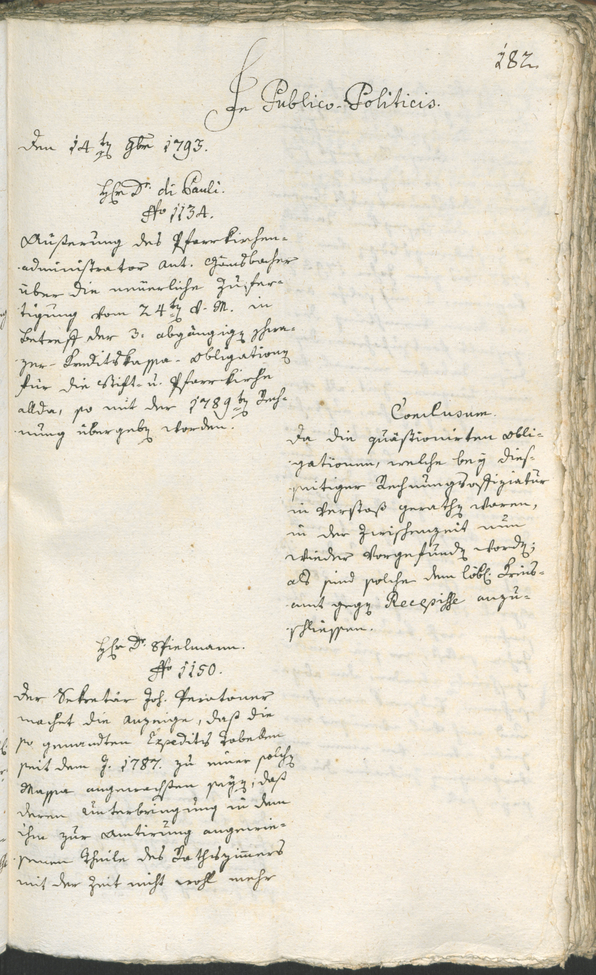 182.
In Publico-Politicis.
den 14ten 9ber 1793.
Hr Dr. di Pauli.
No 1134.
Äußerung des Pfarrkirchen-
administrator Ant. Gänsbacher
über die neuerliche Zufer-
tigung vom 24ten d. M. in
Betreff der 3. abgängigen
zer-Kreditskassa-Obligationen
für die Stift- u. Pfarrkirche
allda, so mit der 1789ten Rech-
nung übergeben worden.
Conclusum.
Da die quästionirten Obli-
gationen, welche bey dies-
seitiger Rechnungsoffiziatur
in Verstoß gerathen waren,
in der Zwischenzeit nun
wieder vorgefunden worden;
als sind solche dem löbl. Kreis-
amt gegen Recepisse anzu-
schliessen.
Hr Dr. Spielmann.
No 1150.
Der Sekretär Joh.
machet die Anzeige, daß die
so genandten Expedits
seit dem J. 1787. zu einer solchen
Massa angewachsen seyen, daß
deren Unterbringung in dem
ihm zur Amtirung angewie-
senen Theile des Rathszimmers
mit der Zeit nicht wohl mehr